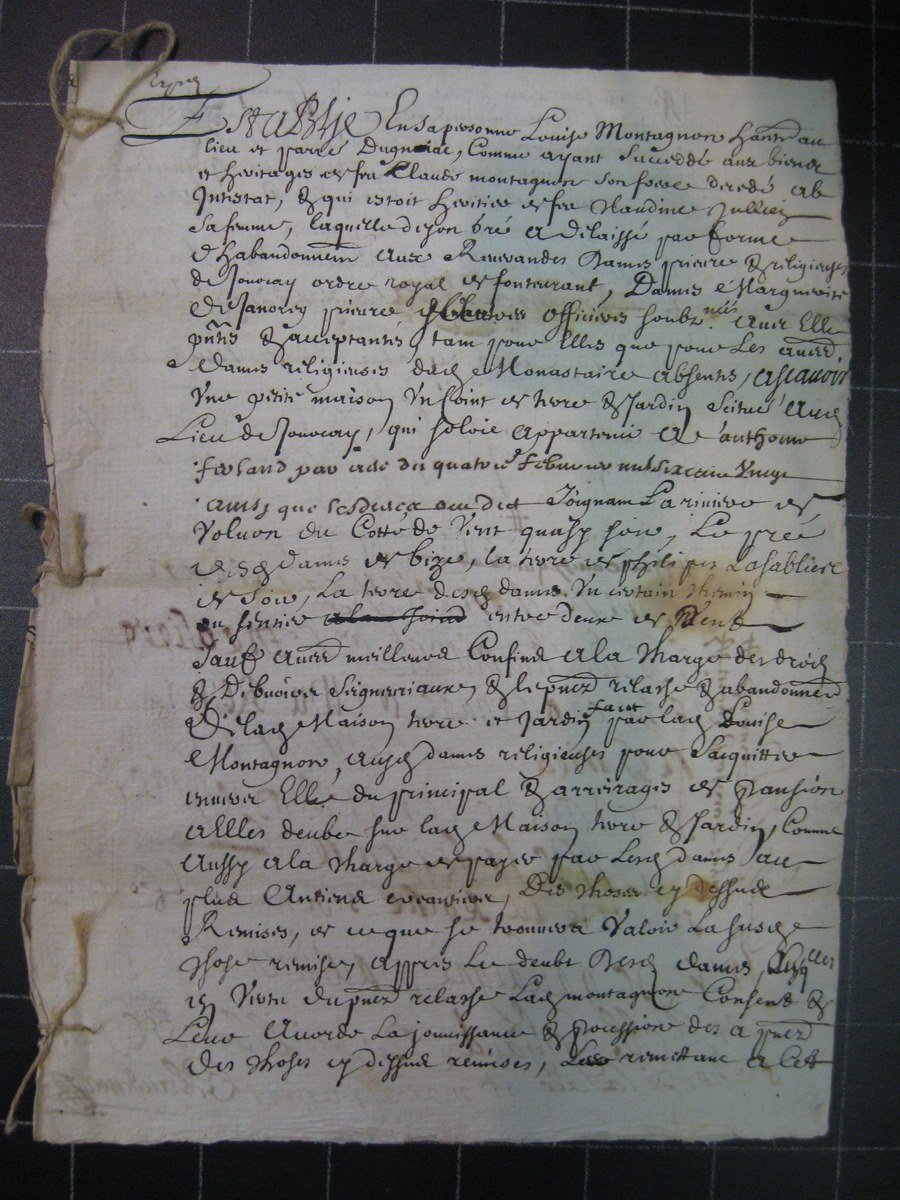 Establye En sa personne Louise Montagnon habitante au
lieu et parre Dugnaiac, Comme ayant succeddé aux biens
et heritages de feu Claude montagnon son frere decedé ab
Intestat, & qui estoit heritier de feu Claudine Jullien
sa femme, laquelle de son gré a délaissé par forme
d'habandonnem aux Reverandes Dames prieure & religieuses
de Jourcay ordre royal de fontevraut, Dames Marguerite
De Janorey prieure officieres soubz nées avec Elle
pntes & acceptantes, tam pour Elles que pour Les autres
Dames religieuses dud Monastaire absentes, ascavoir
Une petite maison Un Coint de terre & Jardin Scitué aud
Lieu de Jourcay, qui soloit appartenir a anthoine
ferland par acte du quatrie febvrier mil sixcens Vingt
ainsy que Joignant La riviere de
Volvon du Cotté de Vent quasy soir, Le pré
desd Dames de bize, la terre de philipes Lasabliere
de Soir, La terre desd dames Un certain chemin
ou sentier entre deux de Vent
Sauf autres meilleurs Confins a la charge des droits
& Debvoirs Seigneuriaux, & le pnt relasse & abandonnem
De lad Maison terre et Jardin faict par lad Louise
Montagnon, ausd dames religieuses pour Sacquitter
envers Elles du principal & arreirages de pansion
a Elles deube sur lad Maison terre & Jardin, Comme
Aussy a la charge de payer par Lesd dames au
plus Antiens creansiers, Des choses cy dessus
Remises, de ce que se trouvera Valoir La susd
chose remise, appres Le deubt desd dames,
en Vertu du pnt relasse Lad montagnon Consent &
Leur Accorde La jouissance & pocession des a pnt
des choses cy dessus remises, remettant a Cet